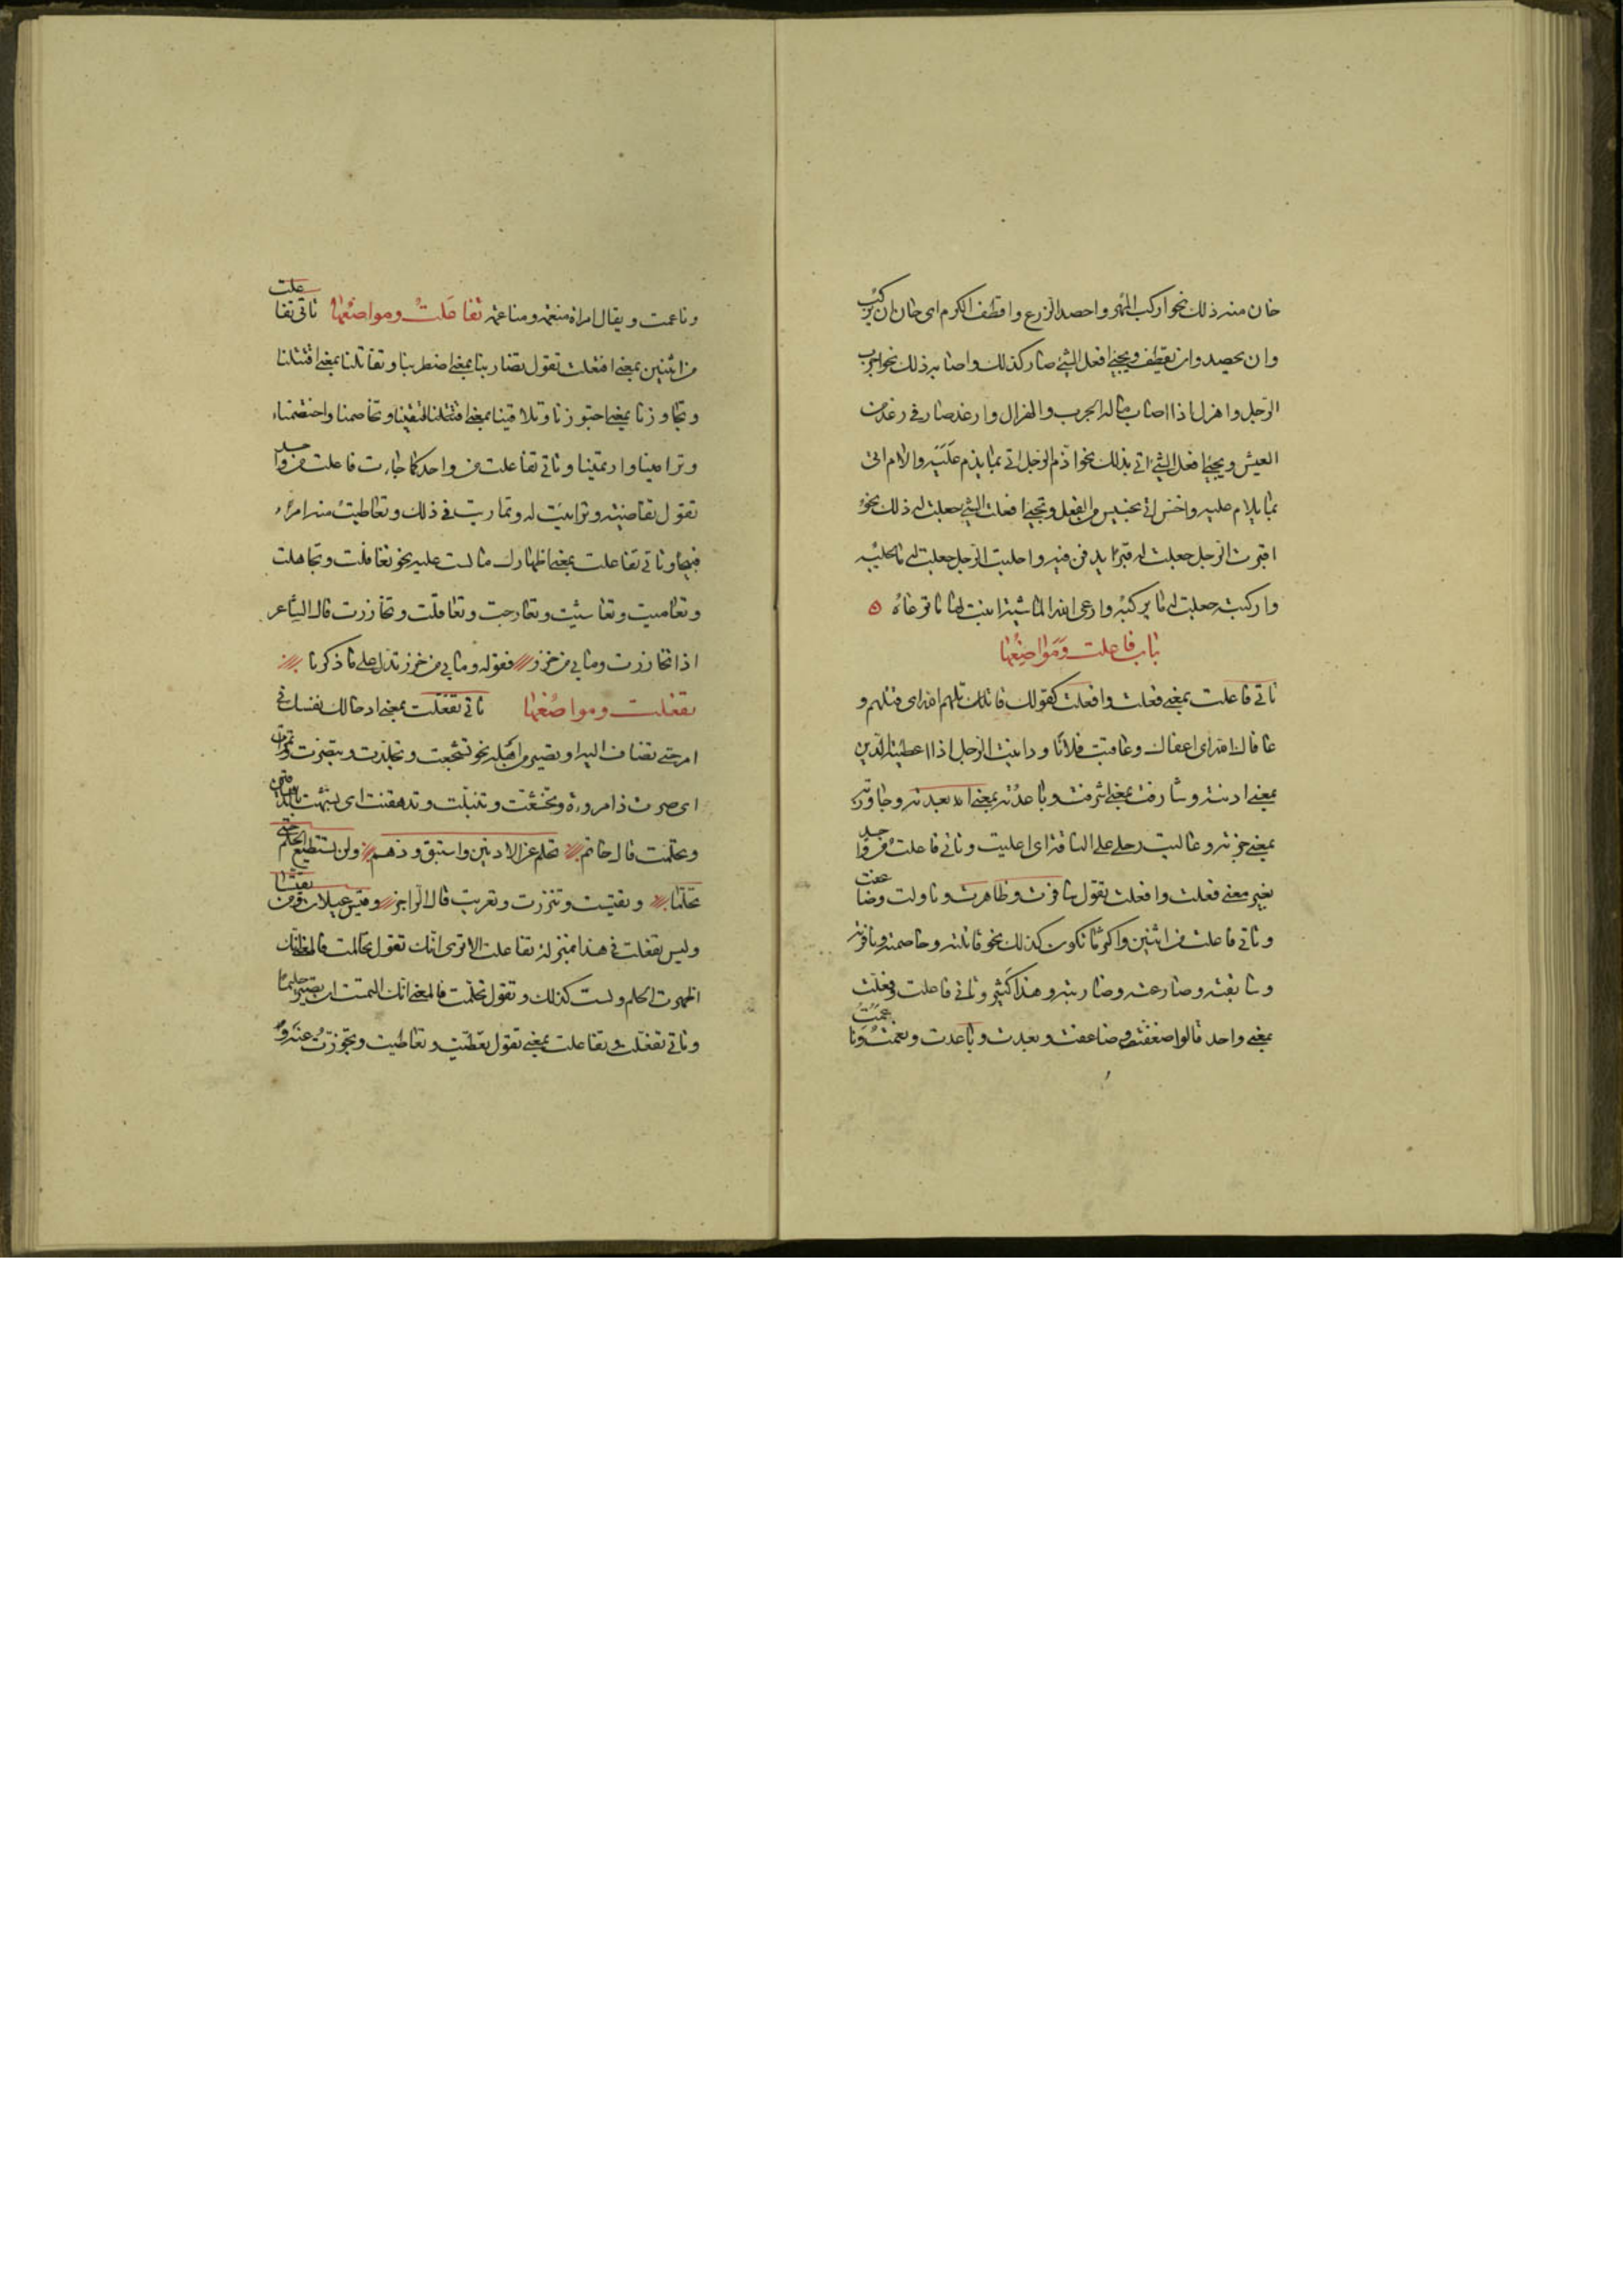 حان منه ذلك نحو اركب المهر واحصد الزرع واقطف الكرم اى حان ان يركب
وان يحصد وان يقطف ويجئ افعل الشئ صار كذلك واصابه ذلك نحو اجرب
الرجل واهزل اذا اصاب ماله الجرب والهزال وارغد صار فى رغد من
العيش ويجئ افعل الشئ اتى بذلك نحو اذم الرجل اتى بما يذم عليه والام اتى
بما يلام عليه واخس اتى بخسيس من الفعل وتجئ افعلت الشئ جعلت له ذلك نحو
اقبرت الرجل جعلت له قبرا يدفن فيه واحلبت الرجل جعلت له ما يحلبه
واركبته جعلت له ما يركبه وارعى الله الماشية انبت لها ما ترعاه ه
باب فاعلت ومواضعها
تاتى فاعلت بمعنى فعلت وافعلت كقولك قاتلهم الله اى قتلهم و
عافاك الله اى اعفاك وعاقبت فلانا وداينت الرجل اذا اعطيته الدين
بمعنى ادنته وشارفت بمعنى اشرفت وباعدته بمعنى ابعدته وجاوزته
بمعنى جزته وعاليت رحلى على الناقة اى اعليت وتاتى فاعلت من واحد
بغير معنى فعلت وافعلت تقول سافرت وظاهرت وناولت وضاعفت
وتاتى فاعلت من اثنين واكثر ما تكون كذلك نحو قاتلته وخاصمته ونافرته
وسابقته وصارعته وضاربته وهذا كثير وتاتى فاعلت وفعلت
بمعنى واحد قالوا ضعفت وضاعفت وبعدت وباعدت ونعمت ونا
وناعمت ويقال امراة منعمة ومناعمة تفاعلت ومواضعها تاتى تفاعلت
من اثنين بمعنى افتعلت تقول تضاربنا بمعنى اضطربنا وتقاتلنا بمعنى اقتتلنا
وتجاورنا بمعنى اجتورنا وتلاقينا بمعنى التقينا وتخاصمنا واختصمنا
وترامينا وارتمينا وتاتى تفاعلت من واحد كما جاءت فاعلت من واحد
تقول تقاضيته وترائيت له وتماريت فى ذلك وتعاطيت منه امرا
قبيحا وتاتى تفاعلت بمعنى اظهارك ما لست عليه نحو تغافلت وتجاهلت
وتعاميت وتعاشيت وتعارجت وتعاقلت وتخازرت قال الشاعر
اذا تخازرت وما بى من خزر فقوله وما بى من خزر تدل على ما ذكرنا
تفعلت ومواضعها تاتى تفعلت بمعنى ادخالك نفسك فى
امر حتى تضاف اليه او تصير من اهله نحو تشجعت وتجلدت وتبصرت وتمرأت
اى صرت ذا مروءة وتخشعت وتنبلت وتدهقنت اى تشبهت بالدهاقين
وتحلمت قال حاتم تحلم عن الادنين واستبق ودهم ولن تستطيع الحلم حتى
تحلما وتقيست وتنزرت وتعربت قال الراجز وقيس عيلان ومن تقيسا
وليس تفعلت فى هذا بمنزلة تفاعلت الا ترى انك تقول تحالمت فالمعنى انك
اظهرت الحلم ولست كذلك وتقول تحلمت فالمعنى انك التمست ان تصير حليما
وتاتى تفعلت وتفاعلت بمعنى تقول تعطيت وتعاطيت وتجوزت عنه و